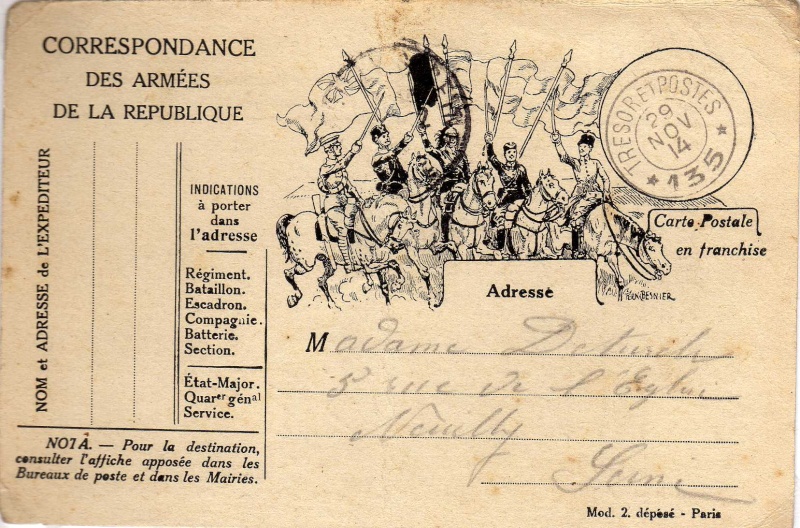 CORRESPONDANCE
DES ARMÉES
DE LA REPUBLIQUE
NOM et ADRESSE de L'EXPÉDITEUR
INDICATIONS
à porter
dans
l'adresse
Régiment.
Bataillon.
Escadron.
Compagnie.
Batterie.
Section.
État-Major.
Quarer génal
Service.
NOTA. — Pour la destination,
consulter l'affiche apposée dans les
Bureaux de poste et dans les Mairies.
TRESOR ET POSTES
29
NOV
14
* 135 *
Carte Postale
en franchise
BESNIER
Adresse
Madame
5 rue de l'Eglise
Neuilly
Seine
Mod. 2. déposé - Paris